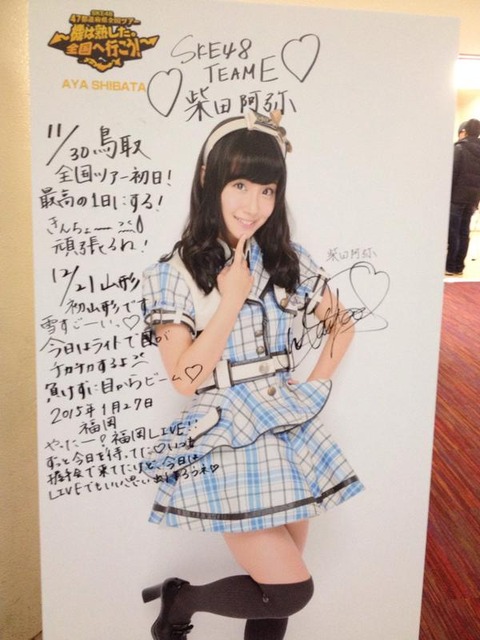 SKE48
47都道府県全国ツアー
〜機は熟した。
全国へ行こう!〜
AYA SHIBATA
SKE48
TEAM E
柴田阿弥
11/30 鳥取
全国ツアー初日!
最高の1日にする!
きんちょー
頑張るね!
12/21 山形
初山形です!
雪すごーい。♡
今日はライトで目が
チカチカするよ
負けずに目からビーム♡
2015年1月27日
福岡
やったー!福岡LIVE!!
ずっと今日を待ってた♡いつも
握手会で来てたけど、今日は
LIVEでもいい思い出し作ろうね♡
柴田阿弥